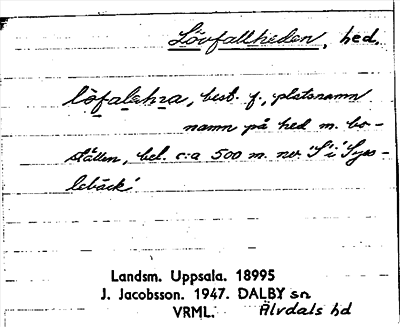 Lövfallheden, hed.
lòfalehƶa, best. f., platsnamn
namn på hed m. bo-
ställen, bel. c:a 500 m. nv. 'S i' Sys-
lebäck'
Landsm. Uppsala. 18995
J. Jacobsson. 1947. DALBY sn
VRML. Älvdals hd